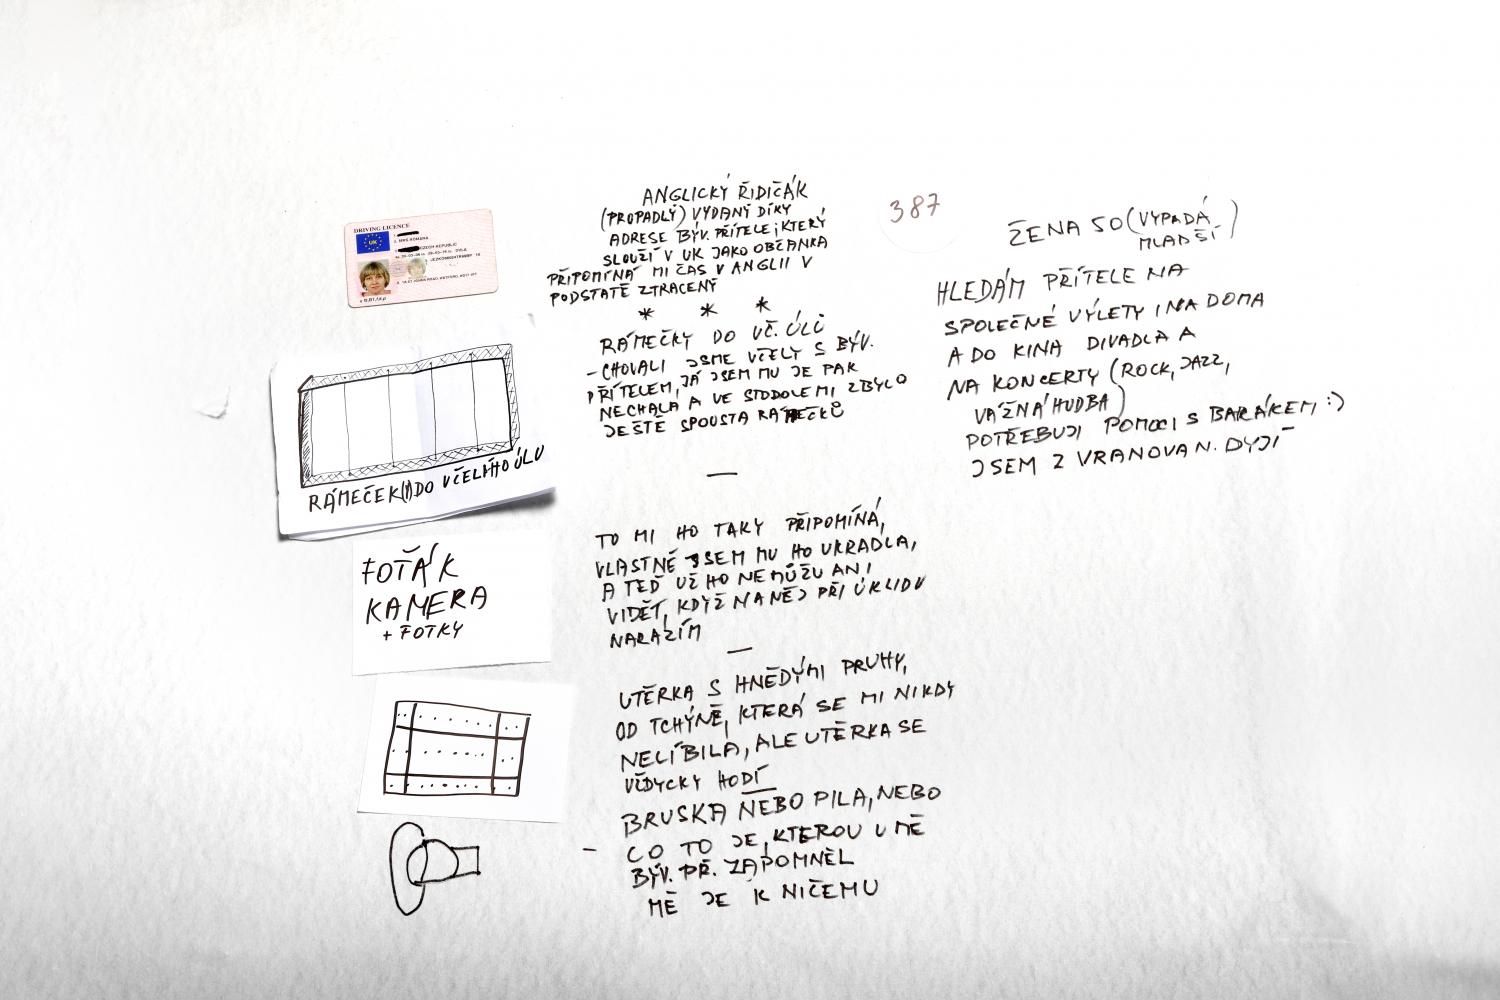 DRIVING LICENCE
UK
2. MRS ROMANA
CZECH REPUBLIC
RÁMEČEK(Y) DO VČELÍHO ÚLU
FOŤÁK
KAMERA
+ FOTKY
ANGLICKÝ ŘIDIČÁK
(PROPADLÝ) VYDANÝ DÍKY
ADRESE BÝV. PŘÍTELE, KTERÝ
SLOUŽÍ V UK JAKO OBČANKA
PŘIPOMÍNÁ MI ČAS V ANGLII V
PODSTATĚ ZTRACENÝ
* * *
RÁMEČKY DO VČ. ÚLŮ
- CHOVALI JSME VČELY S BÝV.
PŘÍTELEM, JÁ JSEM MU JE PAK
NECHALA A VE STODOLE MI ZBYLO
JEŠTĚ SPOUSTA RÁMEČKŮ
—
TO MI HO TAKY PŘIPOMÍNÁ,
VLASTNĚ JSEM MU HO UKRADLA,
A TEĎ UŽ HO NEMŮŽU ANI
VIDĚT, KDYŽ NA NĚJ PŘI ÚKLIDU
NARAZÍM
—
UTĚRKA S HNĚDÝMI PRUHY,
OD TCHÝNĚ, KTERÁ SE MI NIKDY
NELÍBILA, ALE UTĚRKA SE
VŽDYCKY HODÍ
—
BRUSKA NEBO PILA, NEBO
- CO TO JE, KTEROU U MĚ
BÝV. PŘ. ZAPOMNĚL
MĚ JE K NIČEMU
387
ŽENA 50 (VYPADÁ
MLADŠÍ)
HLEDÁM PŘÍTELE NA
SPOLEČNÉ VÝLETY I NA DOMA
A DO KINA DIVADLA A
NA KONCERTY (ROCK, JAZZ,
VÁŽNÁ HUDBA)
POTŘEBUJI POMOCI S BARÁKEM :)
JSEM Z VRANOVA N. DYJÍ